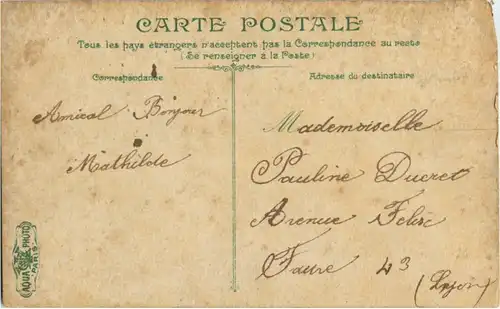 CARTE POSTALE
Tous les pays étrangers n'acceptent pas la Correspondance au recto
(Se renseigner à la Poste)
Correspondance
Adresse du destinataire
Amical Bonjour
Mathilde
Mademoiselle
Pauline Ducret
Avenue Felix
Faure 43
(Lyon)
AQUA PHOTO
PARIS